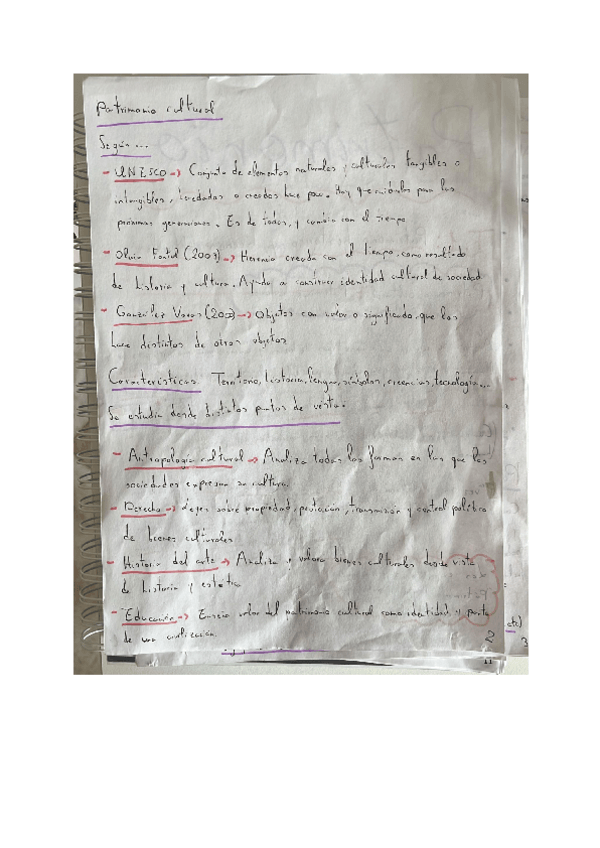 Patrimonio cultural
Según...
- UNESCO → Conjunto de elementos naturales y culturales tangibles o
intangibles, heredados o creados hace poco. Hay que cuidarlos para las
próximas generaciones. Es de todos, y cambia con el tiempo
- Olaia Fontal (2003) → Herencia creada con el tiempo, como resultado
de historia y cultura. Ayuda a construir identidad cultural de sociedad
- González Varas (200) → Objetos con valor o significado, que los
hace distintos de otros objetos
Características Territorio, historia, lengua, símbolos, creencias, tecnología...
Se estudia desde distintos puntos de vista:
- Antropología cultural → Analiza todas las formas en las que las
sociedades expresan su cultura.
- Derecho → Leyes sobre propiedad, protección, transmisión y control público
de bienes culturales
- Historia del arte → Analiza y valora bienes culturales desde vista
de historia y estética
- Educación → Enseña valor del patrimonio cultural como identidad y parte
de una civilización.
2
3